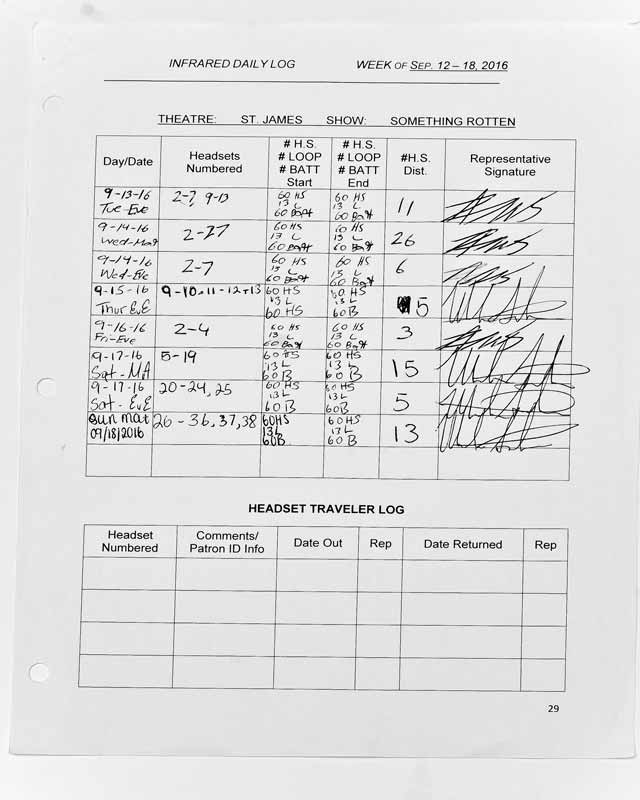 INFRARED DAILY LOG WEEK OF SEP. 12 – 18, 2016
THEATRE: ST. JAMES SHOW: SOMETHING ROTTEN
Day/Date Headsets Numbered # H.S. # LOOP # BATT Start # H.S. # LOOP # BATT End #H.S. Dist. Representative Signature
9-13-16 Tue-Eve 2-7, 9-13 60 HS 13 L 60 Batt 60 HS 13 L 60 Batt 11
9-14-16 Wed-Mat 2-27 60 HS 13 L 60 Batt 60 HS 13 L 60 Batt 26
9-14-16 Wed-Eve 2-7 60 HS 13 L 60 Batt 60 HS 13 L 60 Batt 6
9-15-16 Thur EvE 9-10-11-12+13 60 HS 13 L 60 HS 60 HS 13 L 60 B 5
9-16-16 Fri-Eve 2-4 60 HS 13 L 60 Batt 60 HS 13 L 60 Batt 3
9-17-16 Sat-MA 5-19 60 HS 13 L 60 B 60 HS 13 L 60 B 15
9-17-16 Sat-EvE 20-24, 25 60 HS 13 L 60 B 60 HS 13 L 60 B 5
Sun mat 09/18/2016 26 - 36, 37, 38 60HS 13L 60B 60HS 13 L 60B 13
HEADSET TRAVELER LOG
Headset Numbered Comments/ Patron ID Info Date Out Rep Date Returned Rep
29